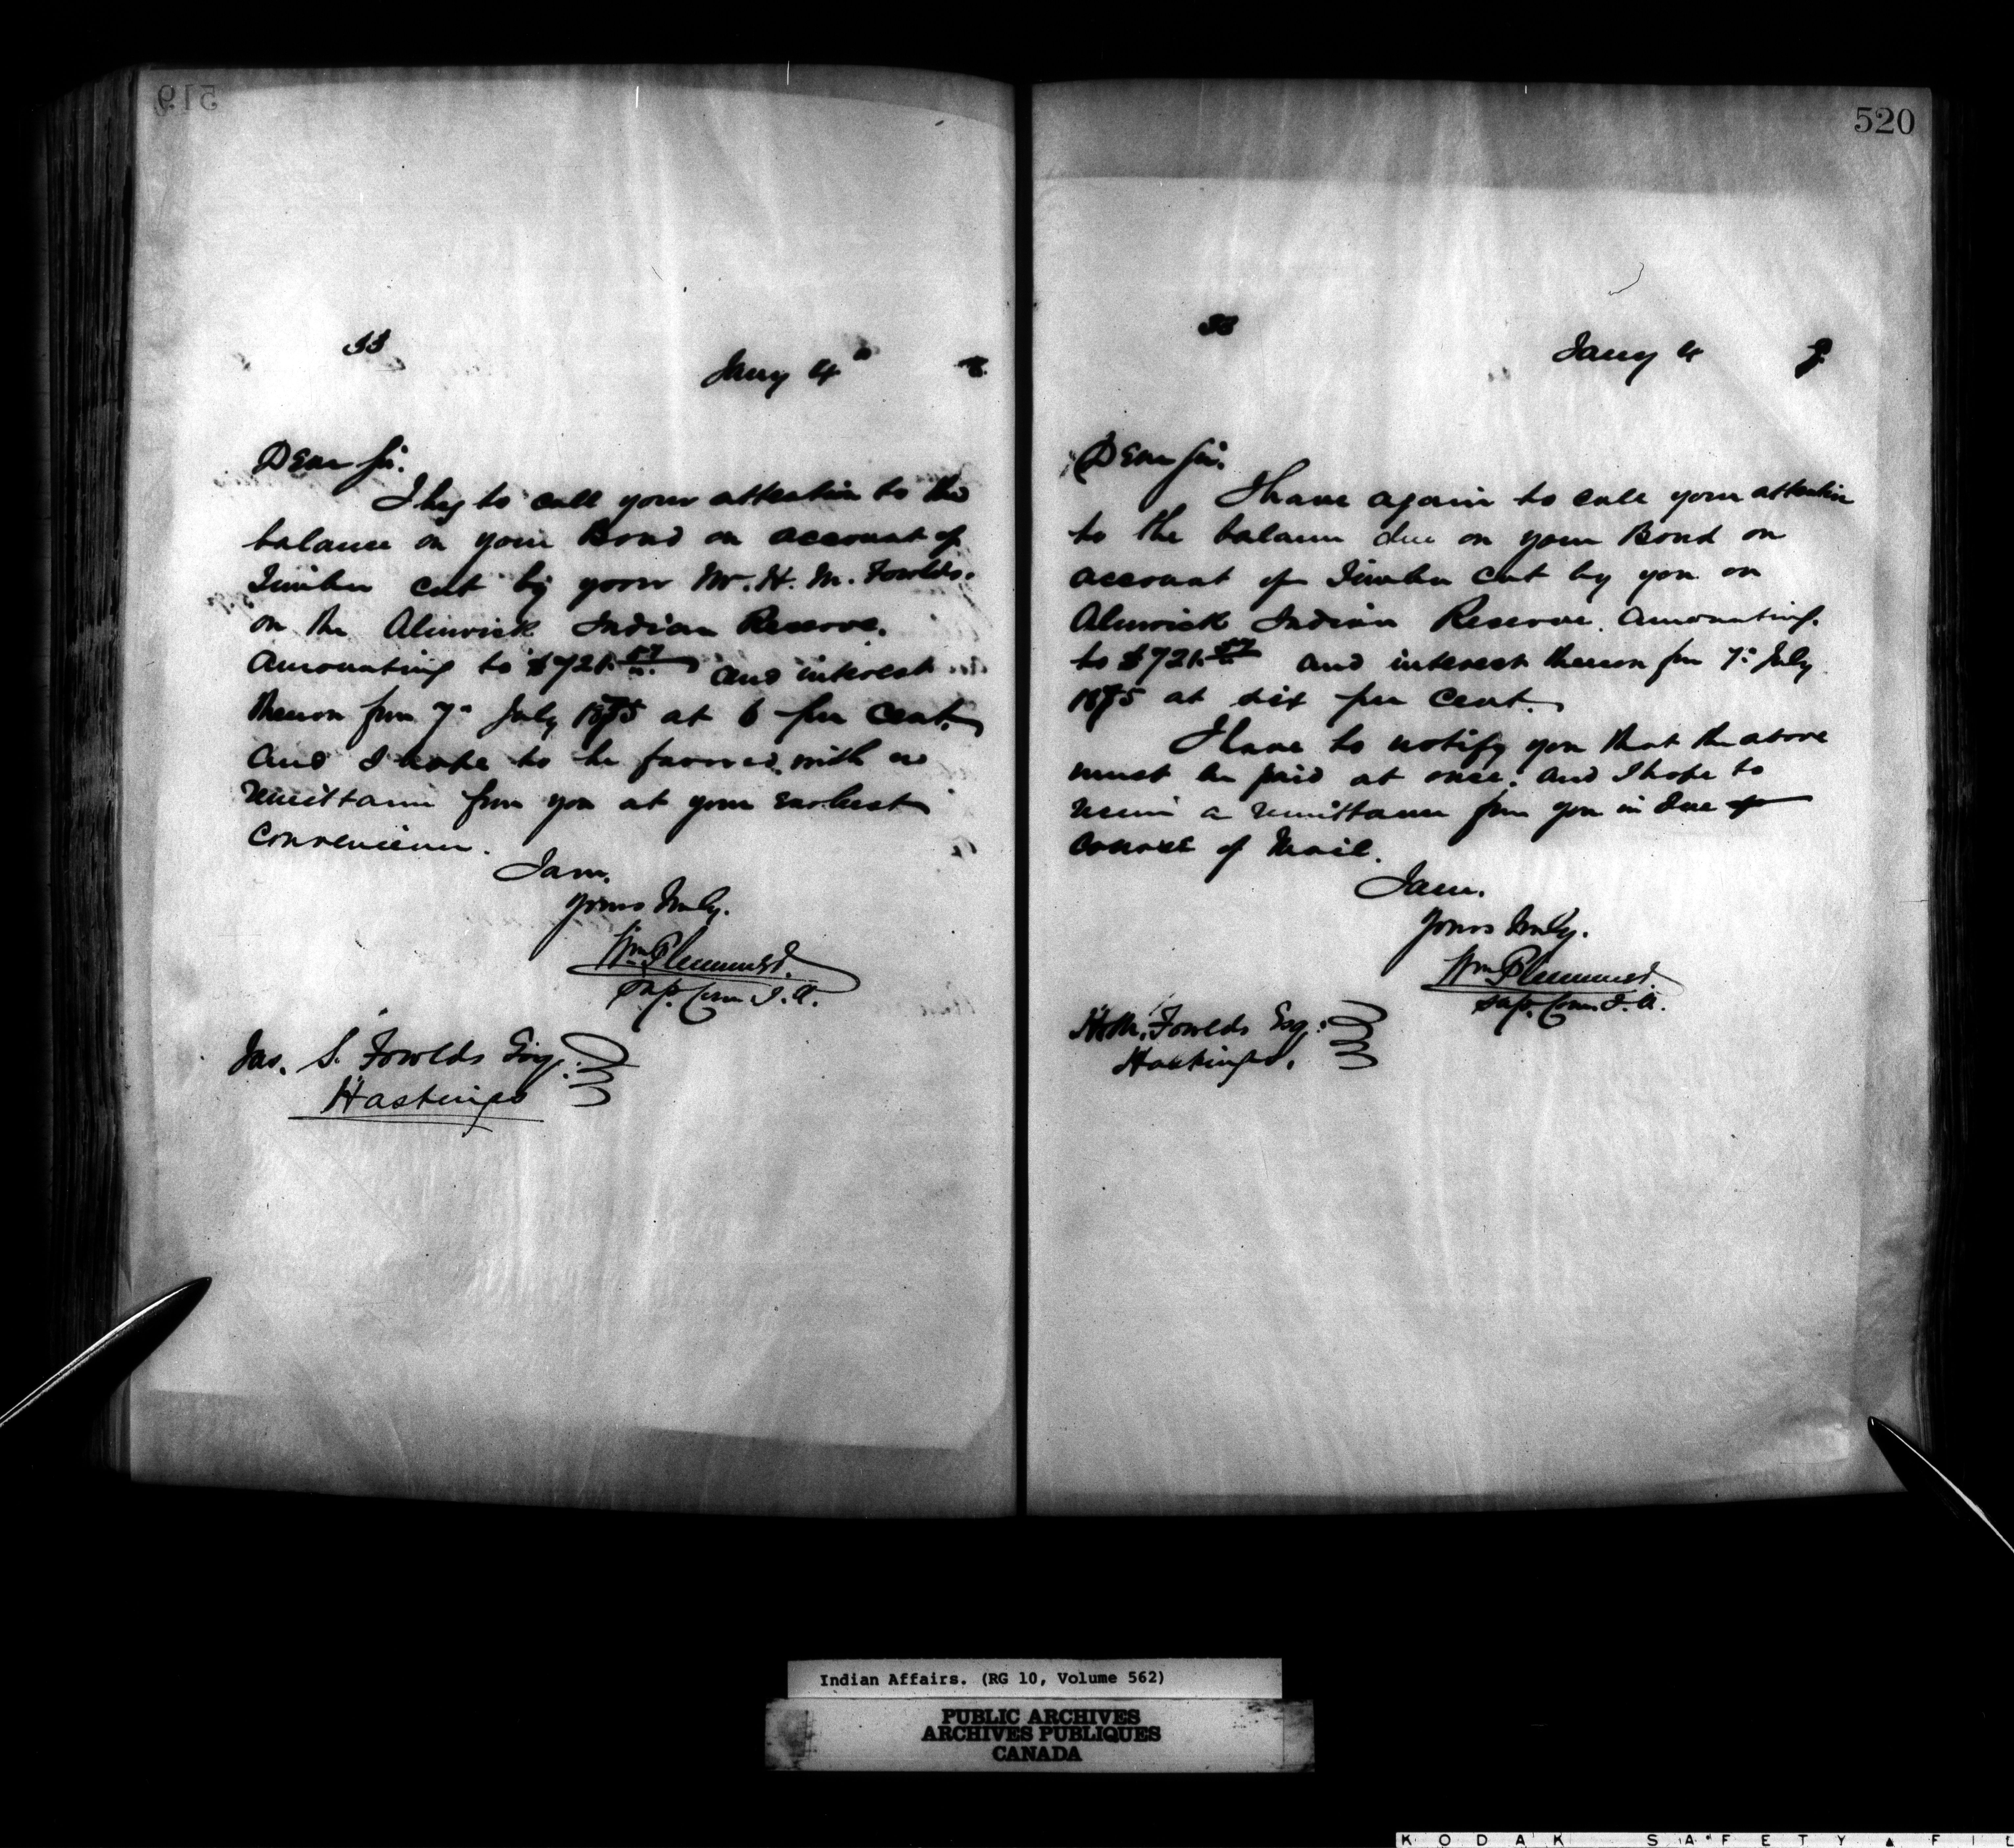 519
33
Jany 4
8.
Dear Sir.
I beg to call your attention to the
balance on your Bond on account of
Timber cut by your Mr. H. M. Fowlds.
on the Alnwick Indian Reserve.
Amounting to $721. and interest
thereon from 7th July 1875 at 6 per Cent.
and I hope to be favored with a
remittance from you at your earliest
Convenience.
I am.
Yours truly.
Wm Plummer.
Sup. Com I. A.
Jas. S. Fowlds Esq.
Hastings
520
33
Jany 4
8
Dear Sir.
I have again to call your attention
to the balance due on your Bond on
account of Timber cut by you on
Alnwick Indian Reserve. Amounting.
to $721. and interest thereon from 7th July
1875 at six per Cent.
I have to notify you that the above
must be paid at once. and I hope to
receive a remittance from you in due of
course of Mail.
I am.
Yours truly.
Wm Plummer.
Sup. Com. I. A.
H. M. Fowlds Esq:
Hastings.
Indian Affairs. (RG 10, Volume 562)
PUBLIC ARCHIVES
ARCHIVES PUBLIQUES
CANADA
KODAK SAFETY FIL